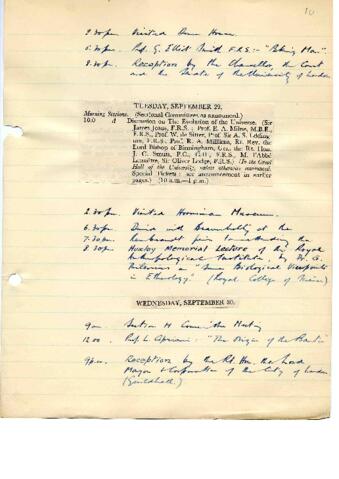 10
2.30pm Visited Down House.
5.30pm Prof. G. Elliot Smith F.R.S:- "Peking Man".
8.30pm Reception by the Chancellor, the Court
and the Senate of the University of London
TUESDAY, SEPTEMBER 29.
Morning Sessions. (Sectional Committees as announced.)
10.0 A Discussion on The Evolution of the Universe. (Sir
James Jeans, F.R.S.; Prof. E. A. Milne, M.B.E.,
F.R.S., Prof. W. de Sitter, Prof. Sir A. S. Edding-
ton, F.R.S.; Prof. R. A. Millikan, Rt. Rev. the
Lord Bishop of Birmingham, Gen. the Rt. Hon.
J. C. Smuts, P.C., C.H., F.R.S., M. l'Abbé
Lemaître, Sir Oliver Lodge, F.R.S.) (In the Great
Hall of the University, unless otherwise announced.
Special Tickets: see announcement in earlier
pages.) (10 a.m.-1 p.m.)
2.30pm Visited Horniman Museum.
6.30pm Dined with at the
7.30pm prior to attending the
8.30pm Huxley Memorial Lecture of the Royal
Anthropological Institute, by Dr. G.
"Some Biological Viewpoints
in Ethnology." (Royal College of
WEDNESDAY, SEPTEMBER 30.
9am Section H Committee Meeting
12.00 Prof. L. Cipriani: "The Origin of the
9p.m. Reception by the Rt. Hon. the Lord
Mayor & Corporation of the City of London
(Guildhall.)